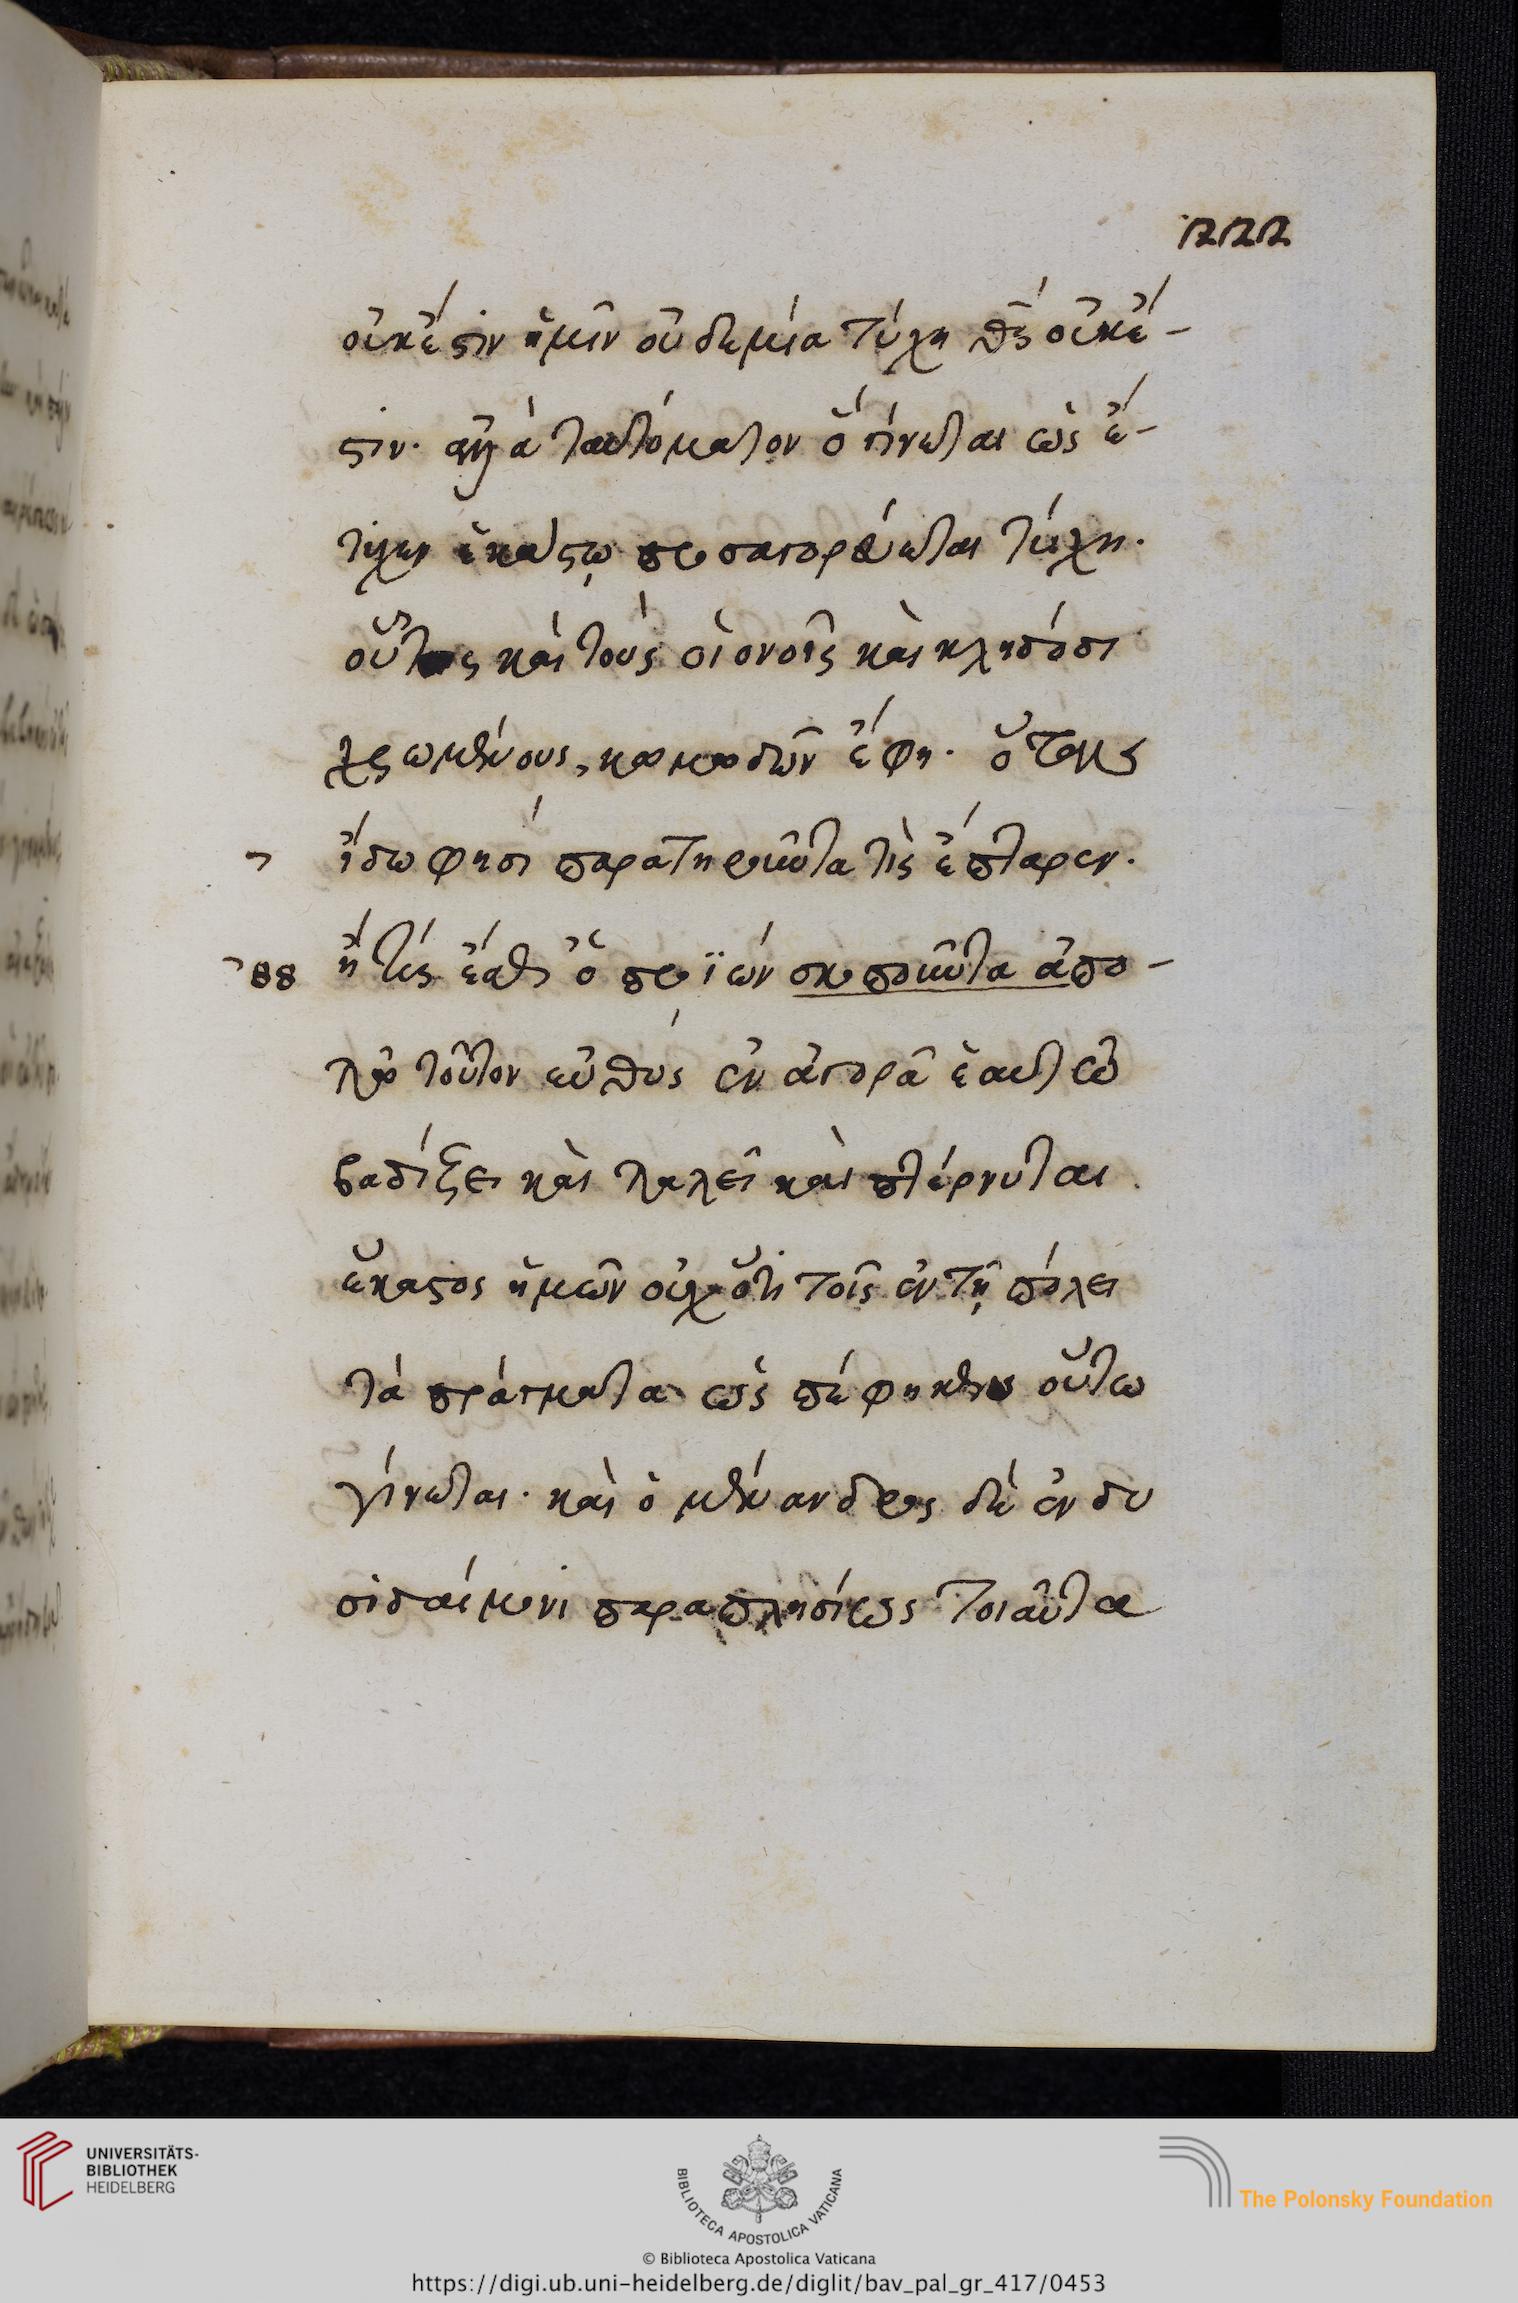 222
οὐκ ἔστιν ἡμῖν οὐδεμία τύχη θς οὐκ ἔ-
στιν· ἀλλὰ ταυτόματον ὃ γίνεται ὡς ἔ-
τυχεν ἑκάστῳ προσαγορεύεται τύχη.
οὗτος καὶ τοὺς οἰονοῖς καὶ κληδόσι
χρωμένους, κωμωδῶν ἔφη. ὅταν
ἴδω φησὶ παρατηροῦντα τίς ἔπταρεν.
ἢ τίς ἐλάλει ὁ προϊὼν σκοποῦντα ἀπο-
λῶ τοῦτον εὐθὺς ἐν ἀγορᾶ ἑαυτῶ
88
βαδίζει καὶ λαλεῖ καὶ πτέρνυται
ἕκαστος ἡμῶν οὐχ ὅτι τοῖς ἐν τῇ πόλει
τὰ πράγματα ὡς πέφηκεν οὕτω
γίνεται. καὶ ὁ μένανδρος δὲ ἐν δυ
σιδαίμονι παραπλησίως τοιαῦτα
UNIVERSITÄTS-
BIBLIOTHEK
HEIDELBERG
BIBLIOTECA APOSTOLICA VATICANA
The Polonsky Foundation
© Biblioteca Apostolica Vaticana
https://digi.ub.uni-heidelberg.de/diglit/bav_pal_gr_417/0453